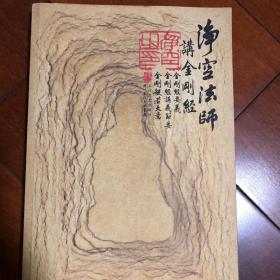 淨空法師
講金剛經
金剛經要義
金剛經講義節要
金剛般若大意